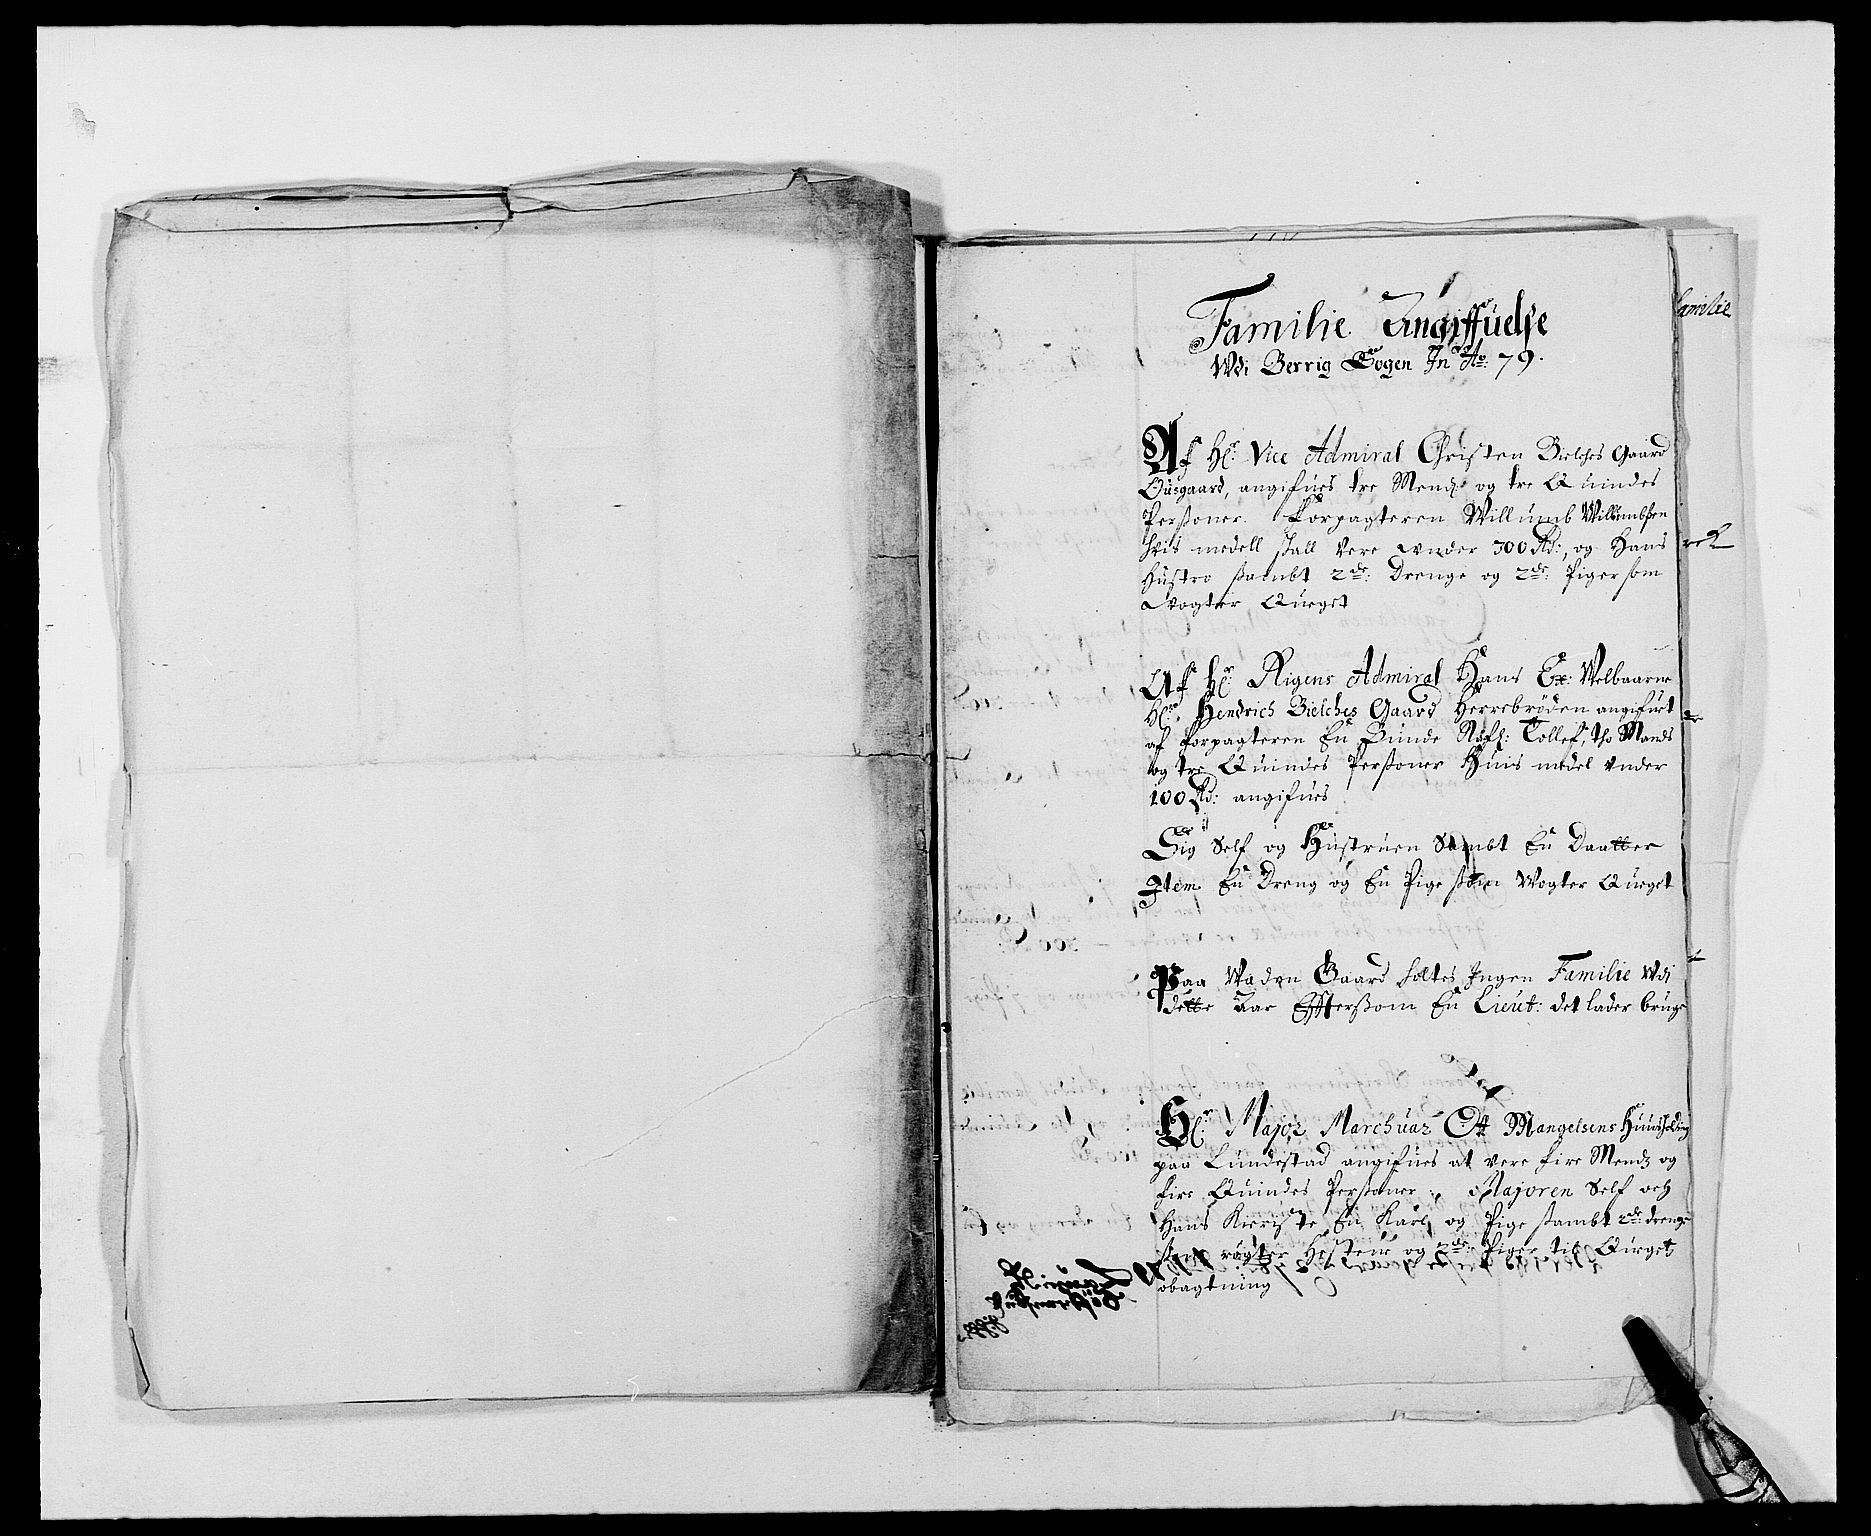 Familie Angiffuelse
Wdi Berrig Sogen In Ao: 79.
Af Hr: Vice Admiral Christen Bielches Gaard
Øusgaard, angifues tre Mend og tre Quindes
Persßoner. Forpagteren Willumb Willumbßen
Hvis medell skall vere under 300 Rd:, og Hans
Hustro sambt 2de: Drenge og 2de: Piger som
Vogter Queget
Af Hr: Rigens Admiral Hans Ex: Welbaarne
Hr: Hendrich Bielches Gaard Herrebröden angifuet
af forpagteren En Bunde Nafl: Tollef, tho Mands
og tre Quindes Persßoner Huis medel under
100 Rd: angifues
Sig Self og Hustruen Sambt En Daatter
Item En Dreng og En Pige ßom Wogter Queget
Paa Waden Gaard holtes Ingen Familie Wdi
dette Aar Effterßom En Lieut: det lader bruge
Hr: Major Marchuar Ott Mangelsens Huusholding
paa Lundestad angifues at vere fire Mend og
fire Quindes Persßoner, Majoren Self och
Hans Kieriste En Karl og Pige sambt 2de drenge
som røgter Hestene og 2de: Piger til Quegetz
obagtning
Familie